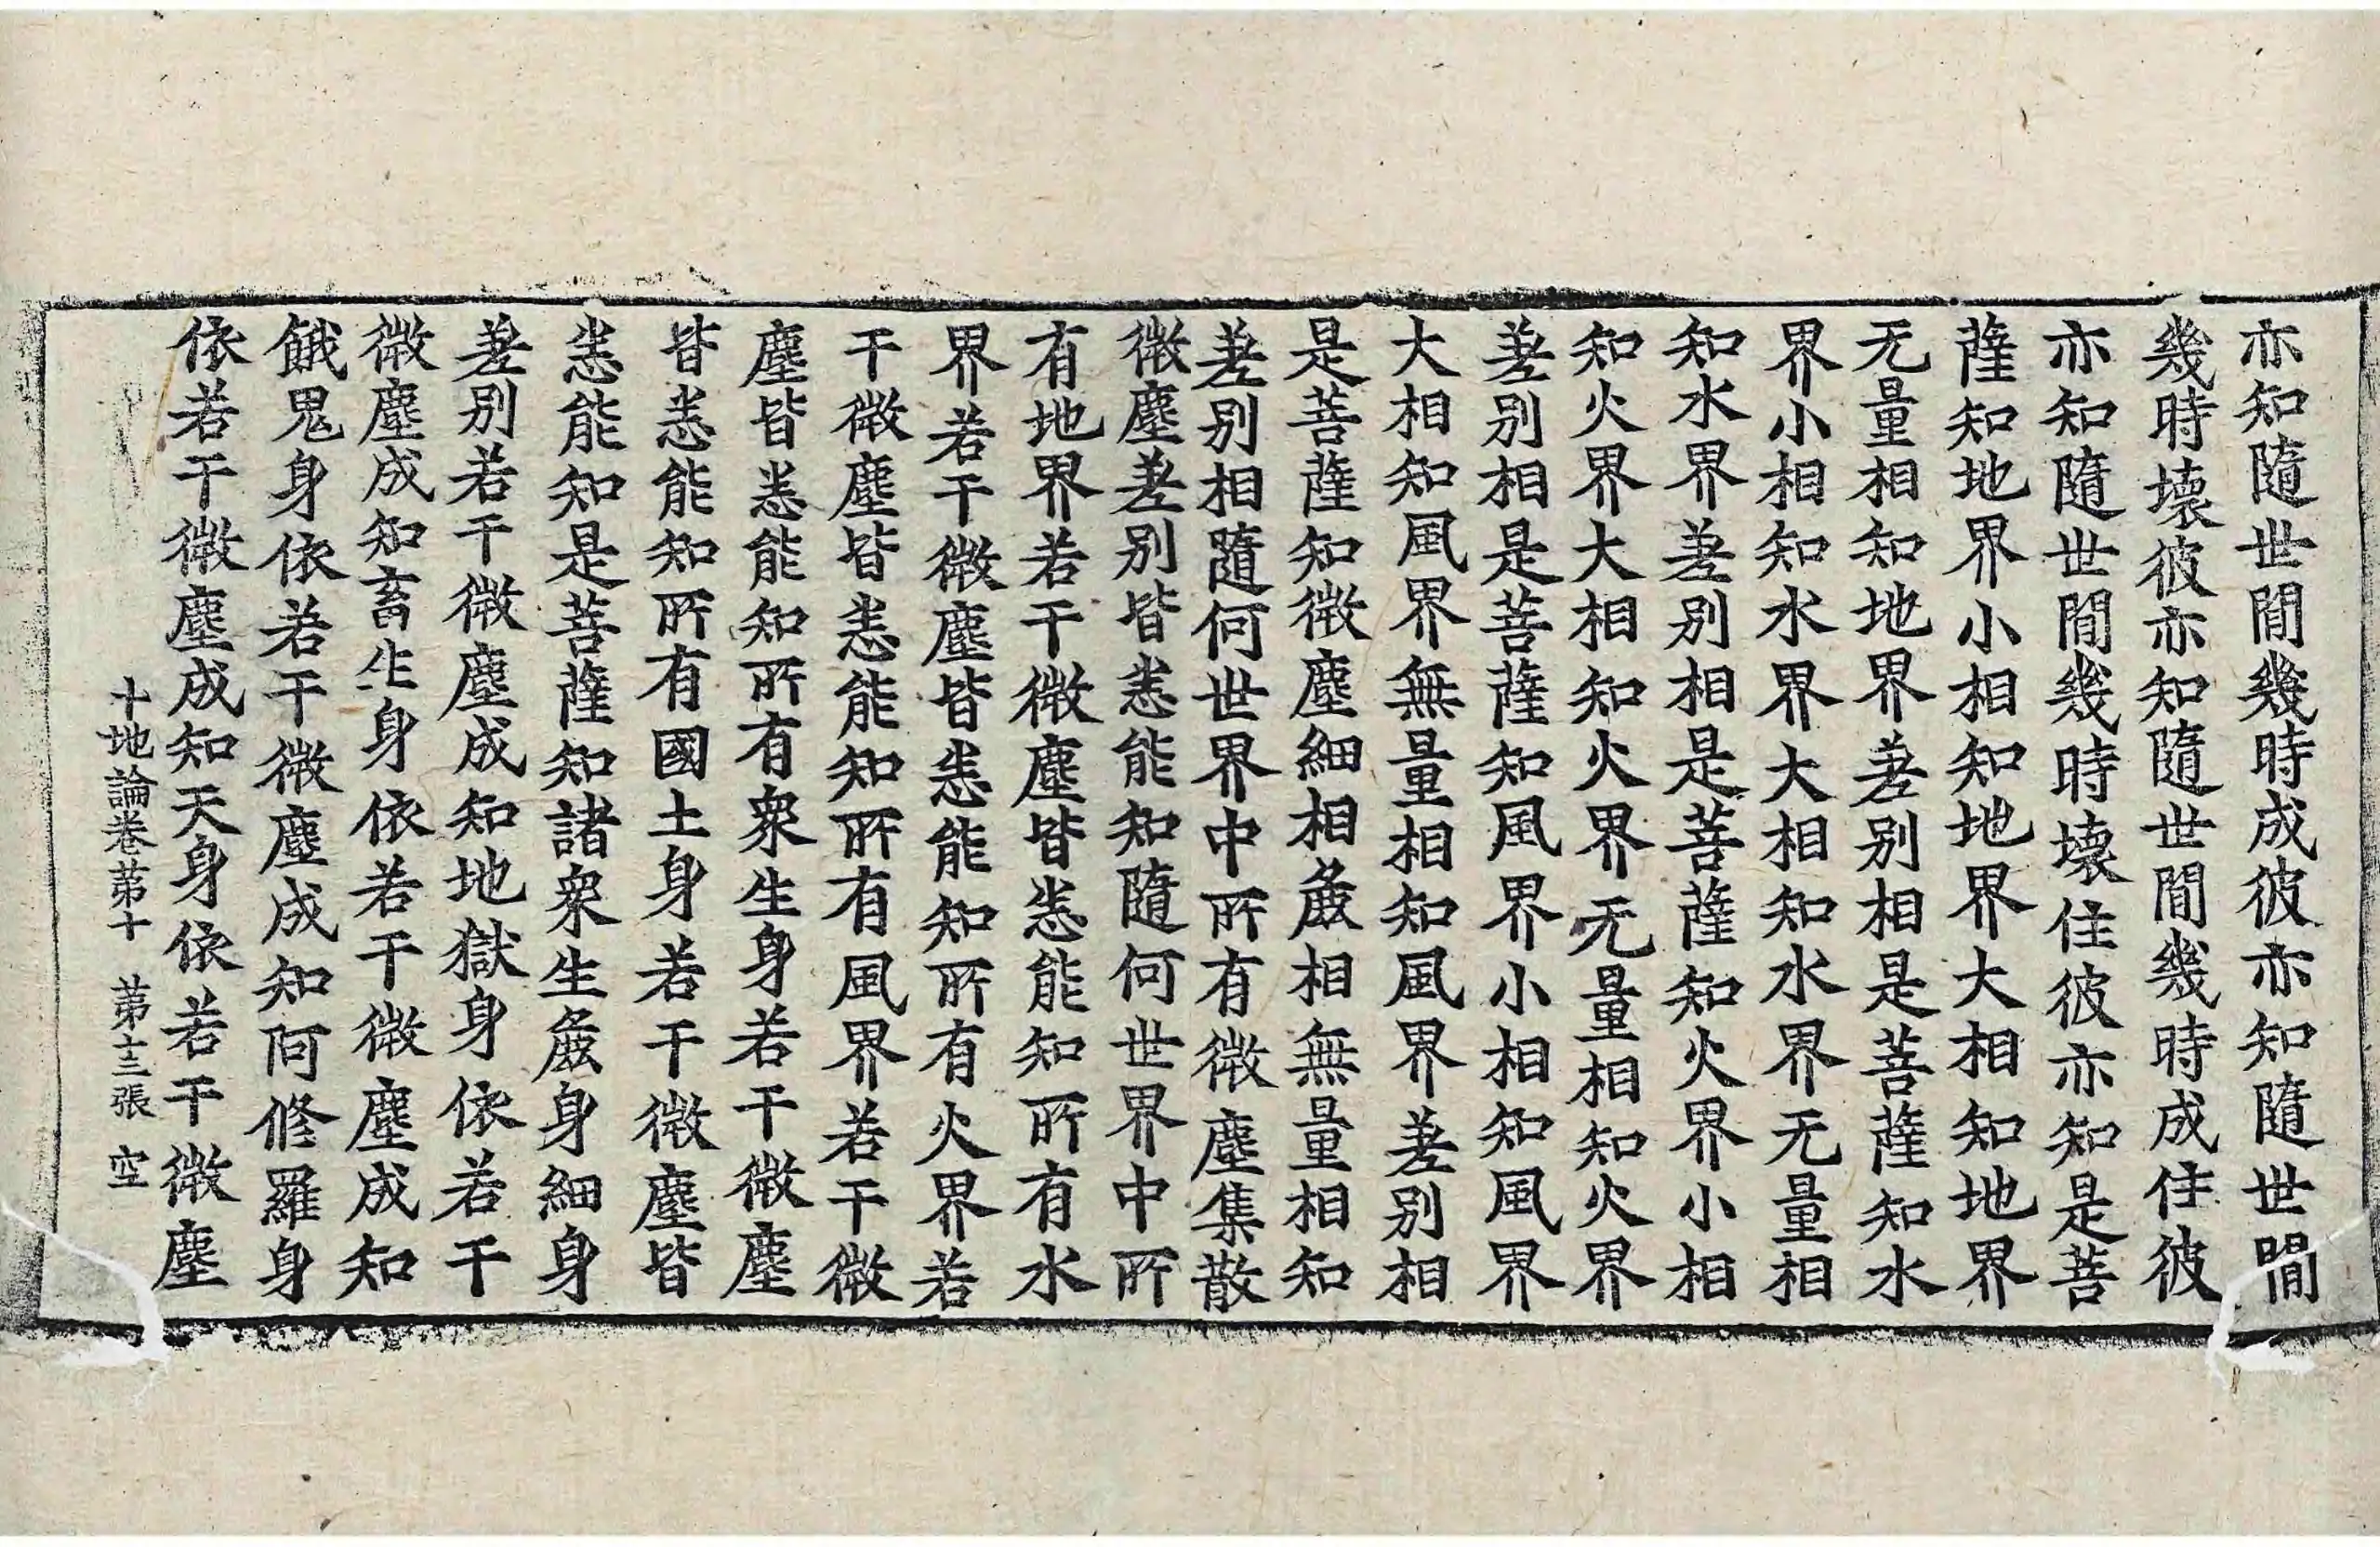 亦知隨世間幾時成彼亦知隨世間
幾時壞彼亦知隨世間幾時成住彼
亦知隨世間幾時壞住彼亦知是菩
薩知地界小相知地界大相知地界
无量相知地界差别相是菩薩知水
界小相知水界大相知水界无量相
知水界差别相是菩薩知火界小相
知火界大相知火界无量相知火界
差别相是菩薩知風界小相知風界
大相知風界無量相知風界差别相
是菩薩知微塵細相麁相無量相知
差别相隨何世界中所有微塵集散
微塵差别皆悉能知隨何世界中所
有地界若干微塵皆悉能知所有水
界若干微塵皆悉能知所有火界若
干微塵皆悉能知所有風界若干微
塵皆悉能知所有衆生身若干微塵
皆悉能知所有國土身若干微塵皆
悉能知是菩薩知諸衆生麁身細身
差别若干微塵成知地獄身依若干
微塵成知畜生身依若干微塵成知
餓鬼身依若干微塵成知阿修羅身
依若干微塵成知天身依若干微塵
十地論卷苐十 苐十三張 空